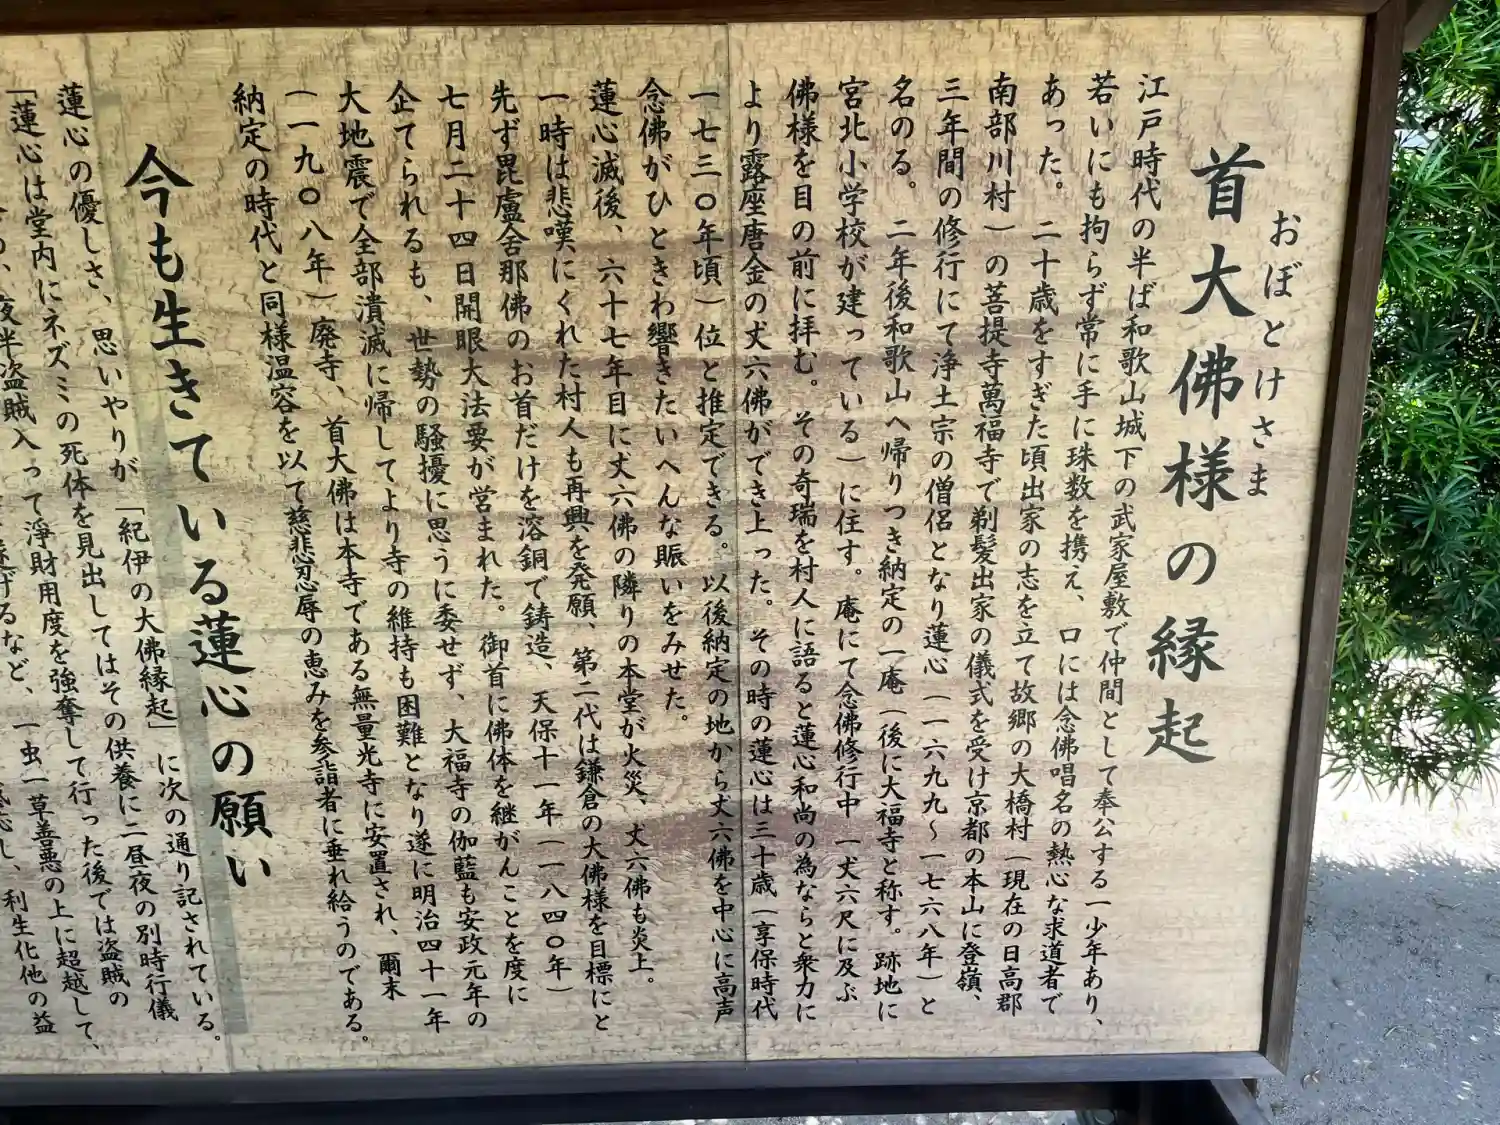 おぼとけさま
首大佛様の縁起
江戸時代の半ば和歌山城下の武家屋敷で仲間として奉公する一少年あり、
若いにも拘らず常に手に珠数を携え、口には念佛唱名の熱心な求道者で
あった。二十歳をすぎた頃出家の志を立て故郷の大橋村(現在の日高郡
南部川村)の菩提寺萬福寺で剃髪出家の儀式を受け京都の本山に登嶺、
三年間の修行にて浄土宗の僧侶となり蓮心(一六九九～一七六八年)と
名のる。二年後和歌山へ帰りつき納定の一庵(後に大福寺と称す。跡地に
宮北小学校が建っている)に住す。庵にて念佛修行中一丈六尺に及ぶ
佛様を目の前に拝む。その奇瑞を村人に語ると蓮心和尚の為ならと衆力に
より露座唐金の丈六佛ができ上った。その時の蓮心は三十歳(享保時代
一七三〇年頃)位と推定できる。以後納定の地から丈六佛を中心に高声
念佛がひときわ響きたいへんな賑いをみせた。
蓮心滅後、六十七年目に丈六佛の隣りの本堂が火災、丈六佛も炎上。
一時は悲嘆にくれた村人も再興を発願、第二代は鎌倉の大佛様を目標にと
先ず毘盧舎那佛のお首だけを溶銅で鋳造、天保十一年(一八四〇年)
七月二十四日開眼大法要が営まれた。御首に佛体を継がんことを度に
企てられるも、世勢の騒擾に思うに委せず、大福寺の伽藍も安政元年の
大地震で全部潰滅に帰してより寺の維持も困難となり遂に明治四十一年
(一九〇八年)廃寺、首大佛は本寺である無量光寺に安置され、爾末
納定の時代と同様温容を以て慈悲忍辱の恵みを参詣者に垂れ給うのである。
今も生きている蓮心の願い
蓮心の優しさ、思いやりが「紀伊の大佛縁起」に次の通り記されている。
「蓮心は堂内にネズミの死体を見出してはその供養に二昼夜の別時行儀
夜半盗賊入って淨財用度を強奪して行った後では盗賊の
げるなど、一虫一草善悪の上に超越して、
し、利生化他の益